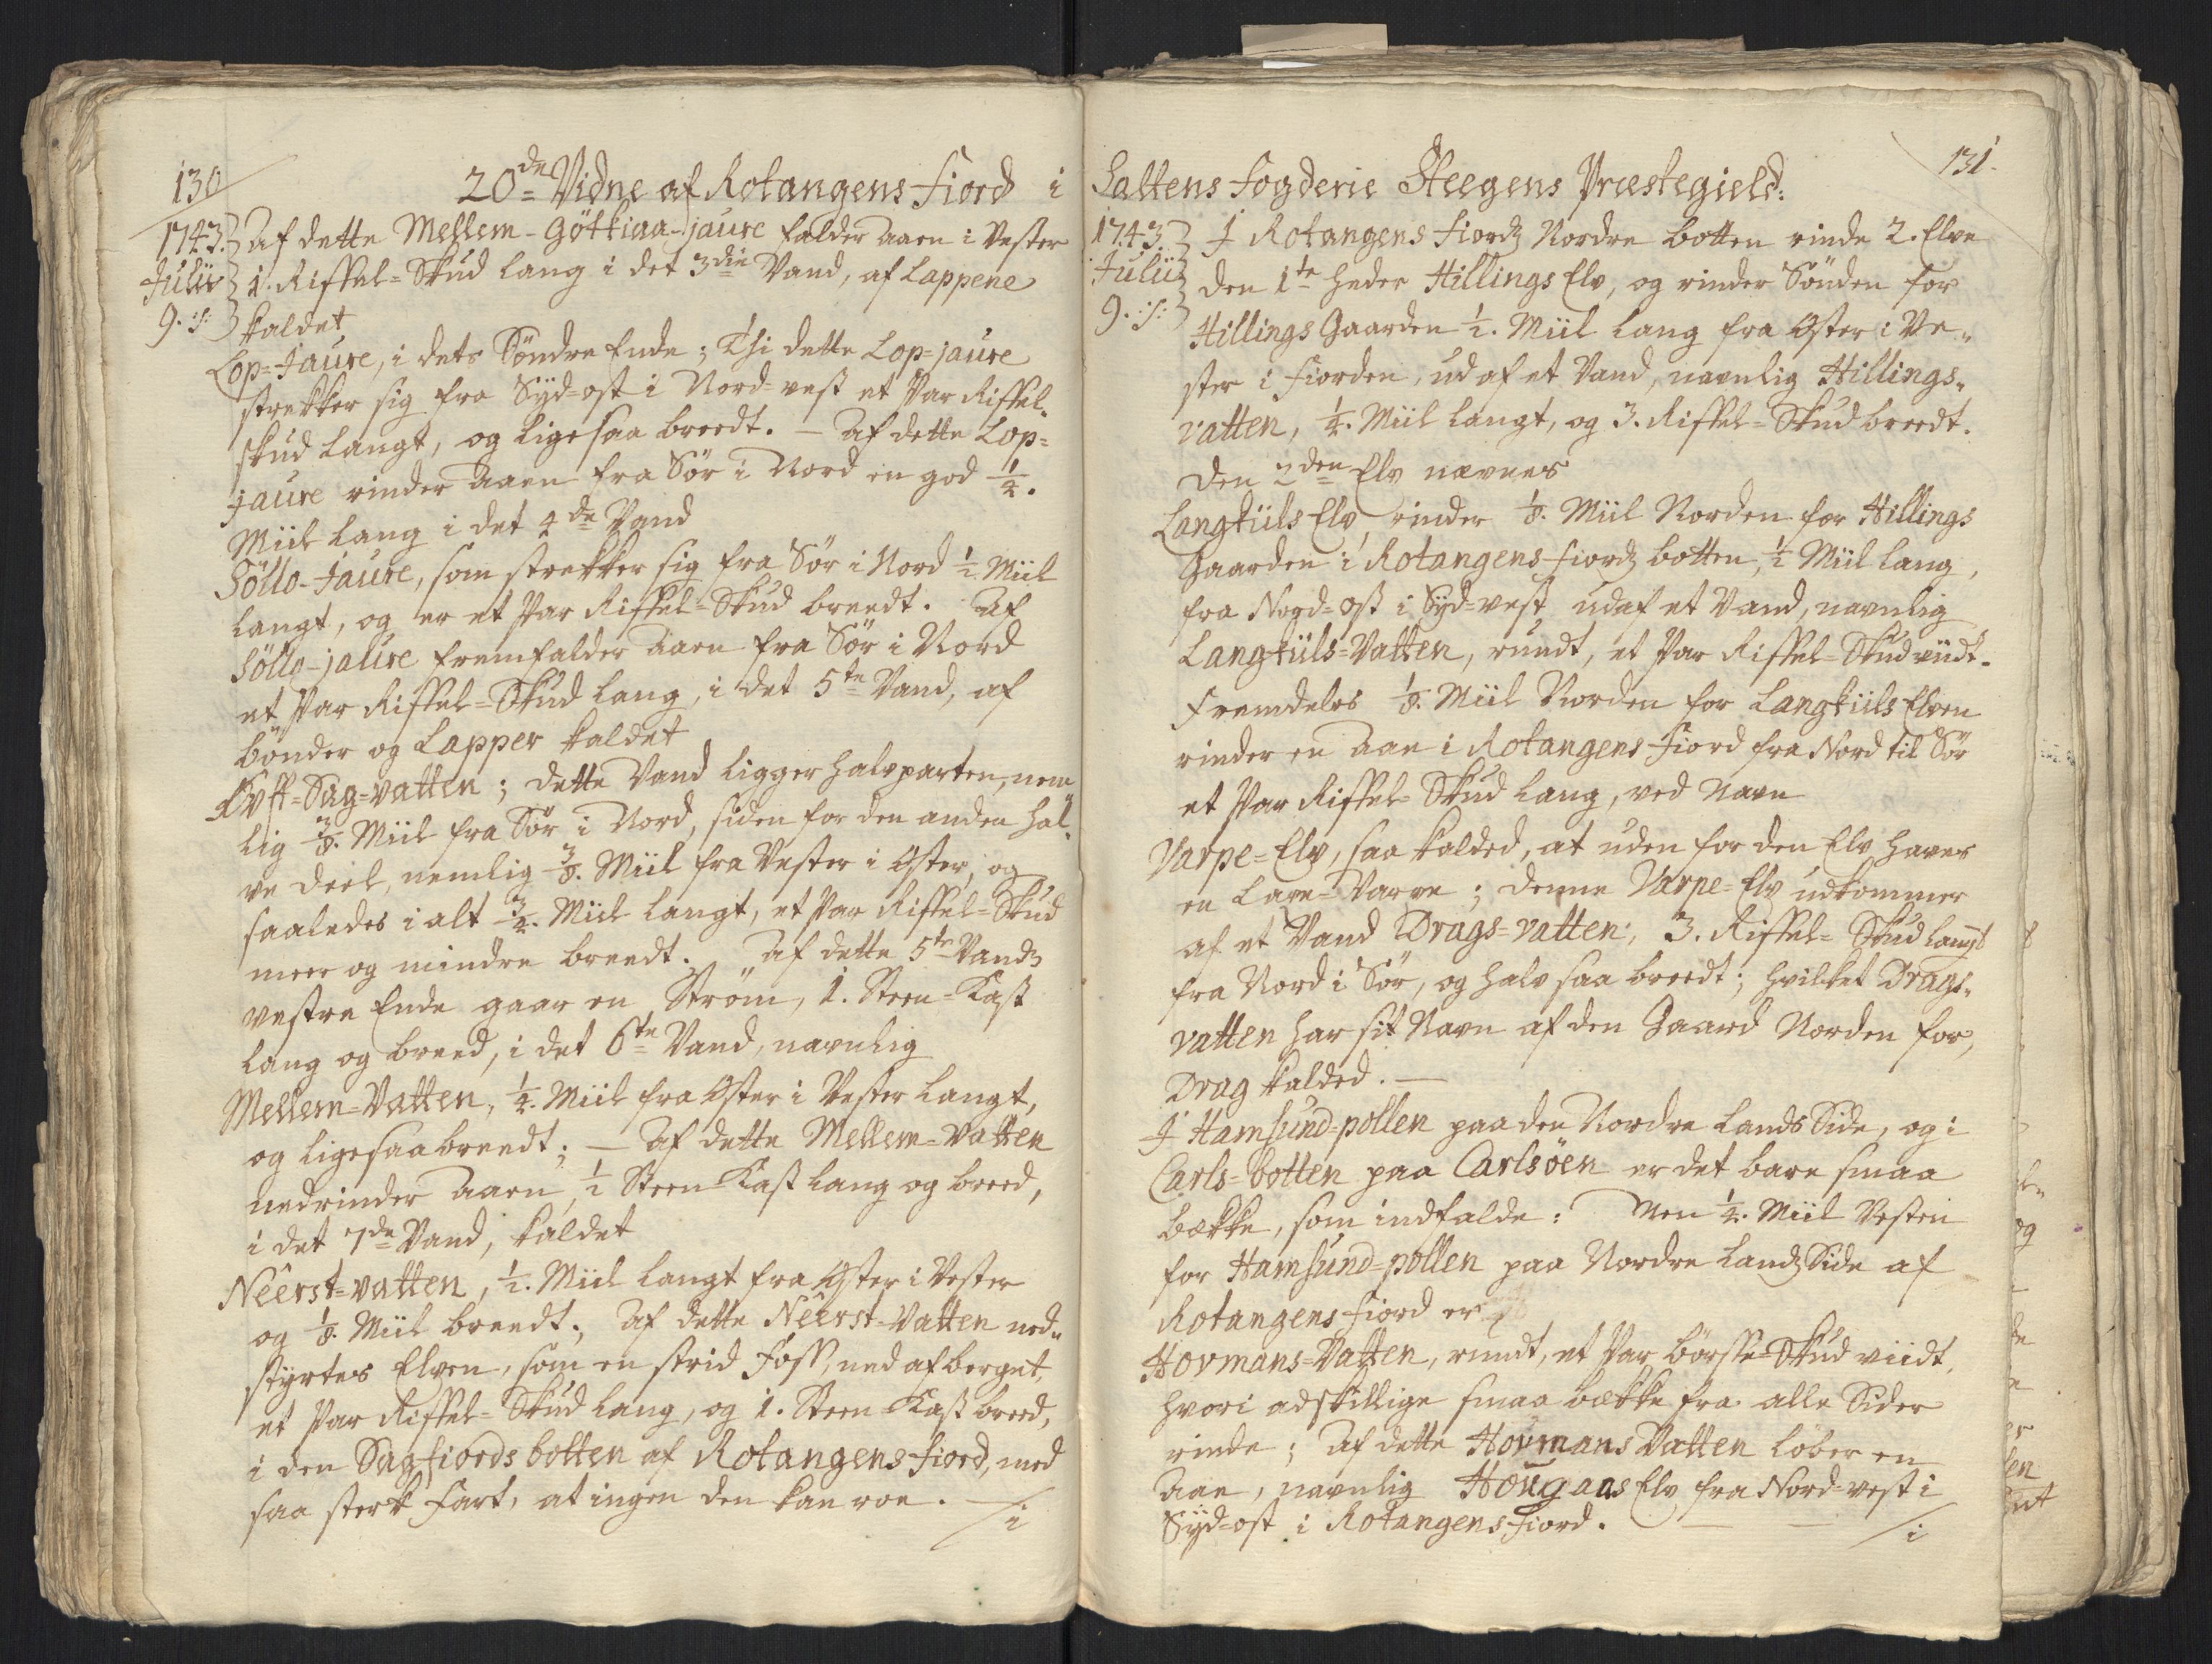 130
20de Vidne af Rotangens Fiord i
1743. Af dette Mellem-Göttiaa-jaure falder Aaen i Vester
Julii 1. Riffel-Skud lang i det 3die Vand, af Lappene
9. :/: kaldet
Lop-Jaure, i dets Söndre Ende; Thi dette Lop-jaure
strekker sig fra Syd-ost i Nord-vest et Par Riffel-
skud langt, og ligesaa breedt. — Af dette Lop-
jaure rinder Aaen fra Sör i Nord en god 1/4.
Miil lang i det 4de Vand
Söllo-Jaure, som strekker sig fra Sör i Nord 1/2 Miil
langt, og er et Par Riffel-Skud breedt. Af
Söllo-jaure fremfalder Aaen fra Sör i Nord
et Par Riffel-Skud lang, i det 5te Vand, af
bönder og Lapper kaldet
Övst-Sag-vatten; dette Vand ligger halvparten, nem
lig 3/8. Miil fra Sör i Nord, siden for den anden hal-
ve Deel, nemlig 3/8. Miil fra Vester i Oster, og
saaledes i alt 3/4. Miil langt, et Par Riffel-Skud
meer og mindre breedt. Af dette 5te Vands
vestre Ende gaar en Ström, 1. Steen-Kast
lang og breed, i det 6te Vand, navnlig
Mellem-Vatten, 1/4. Miil fra Oster i Vester langt,
og ligesaa breedt; — Af dette Mellem-Vatten
nedrinder Aaen, 1/2 Steen-Kast lang og breed,
i det 7de Vand, kaldet
Neêrst-vatten, 1/2. Miil langt fra Oster i Vester
og 1/8. Miil breedt; Af dette Neêrst-Vatten ned-
styrtes Elven, som en strid Foss, ned af berget,
et Par Riffel-Skud lang, og 1. Steen-Kast breed,
i den Sagfiords botten af Rotangens fiord, med
saa sterk Fart, at ingen den kan roe. —
/i
131.
Saltens Fogderie Steegens Præstegield:
1743. I Rotangens Fiords Nordre botten rinde 2. Elve
Julii den 1te heder Hillings Elv, og rinder Sönden for
9. :/: Hillings Gaarden 1/2. Miil lang fra Oster i Ve-
ster i Fiorden, ud af et Vand, navnlig Hillings-
vatten, 1/4. Miil langt, og 3. Riffel-Skud breedt.
Den 2den Elv nævnes
Langkiils Elv, rinder 1/8. Miil Norden for Hillings
Gaarden i Rotangens fiords botten, 1/2 Miil lang,
fra Nord-ost i Syd-vest, ud af et Vand, navnlig
Langkiils-Vatten, rundt, et Par Riffel-Skud viidt.
Fremdeles 1/8. Miil Norden for Langkiils Elven
rinder en Aae i Rotangens Fiord fra Nord til Sör
et Par Riffel-Skud lang, ved Navn
Varpe-Elv, saa kalded, at uden for den Elv haves
en Laxe-Varpe; denne Varpe-Elv udkommer
af et Vand Drags-vatten, 3. Riffel-Skud langt
fra Nord i Sör, og halv saa breedt; hvilket Drags-
vatten har sit Navn af den Gaard Norden for,
Drag kalded. —
I Hamsund-pollen paa den Nordre Lands Side, og i
Carls-botten paa Carlsöen er det bare smaa
bække, som indfalde: Men 1/4. Miil Vesten
for Hamsund-pollen paa Nordre Lands Side af
Rotangens fiord er
Hovmans-Vatten, rundt, et Par börsse-Skud viidt,
hvori adskillige smaa bække fra alle Sider
rinde; Af dette Hovmans Vatten löber en
Aae, navnlig Hougaas Elv fra Nord-vest i
Syd-ost i Rotangens Fiord. —
/i